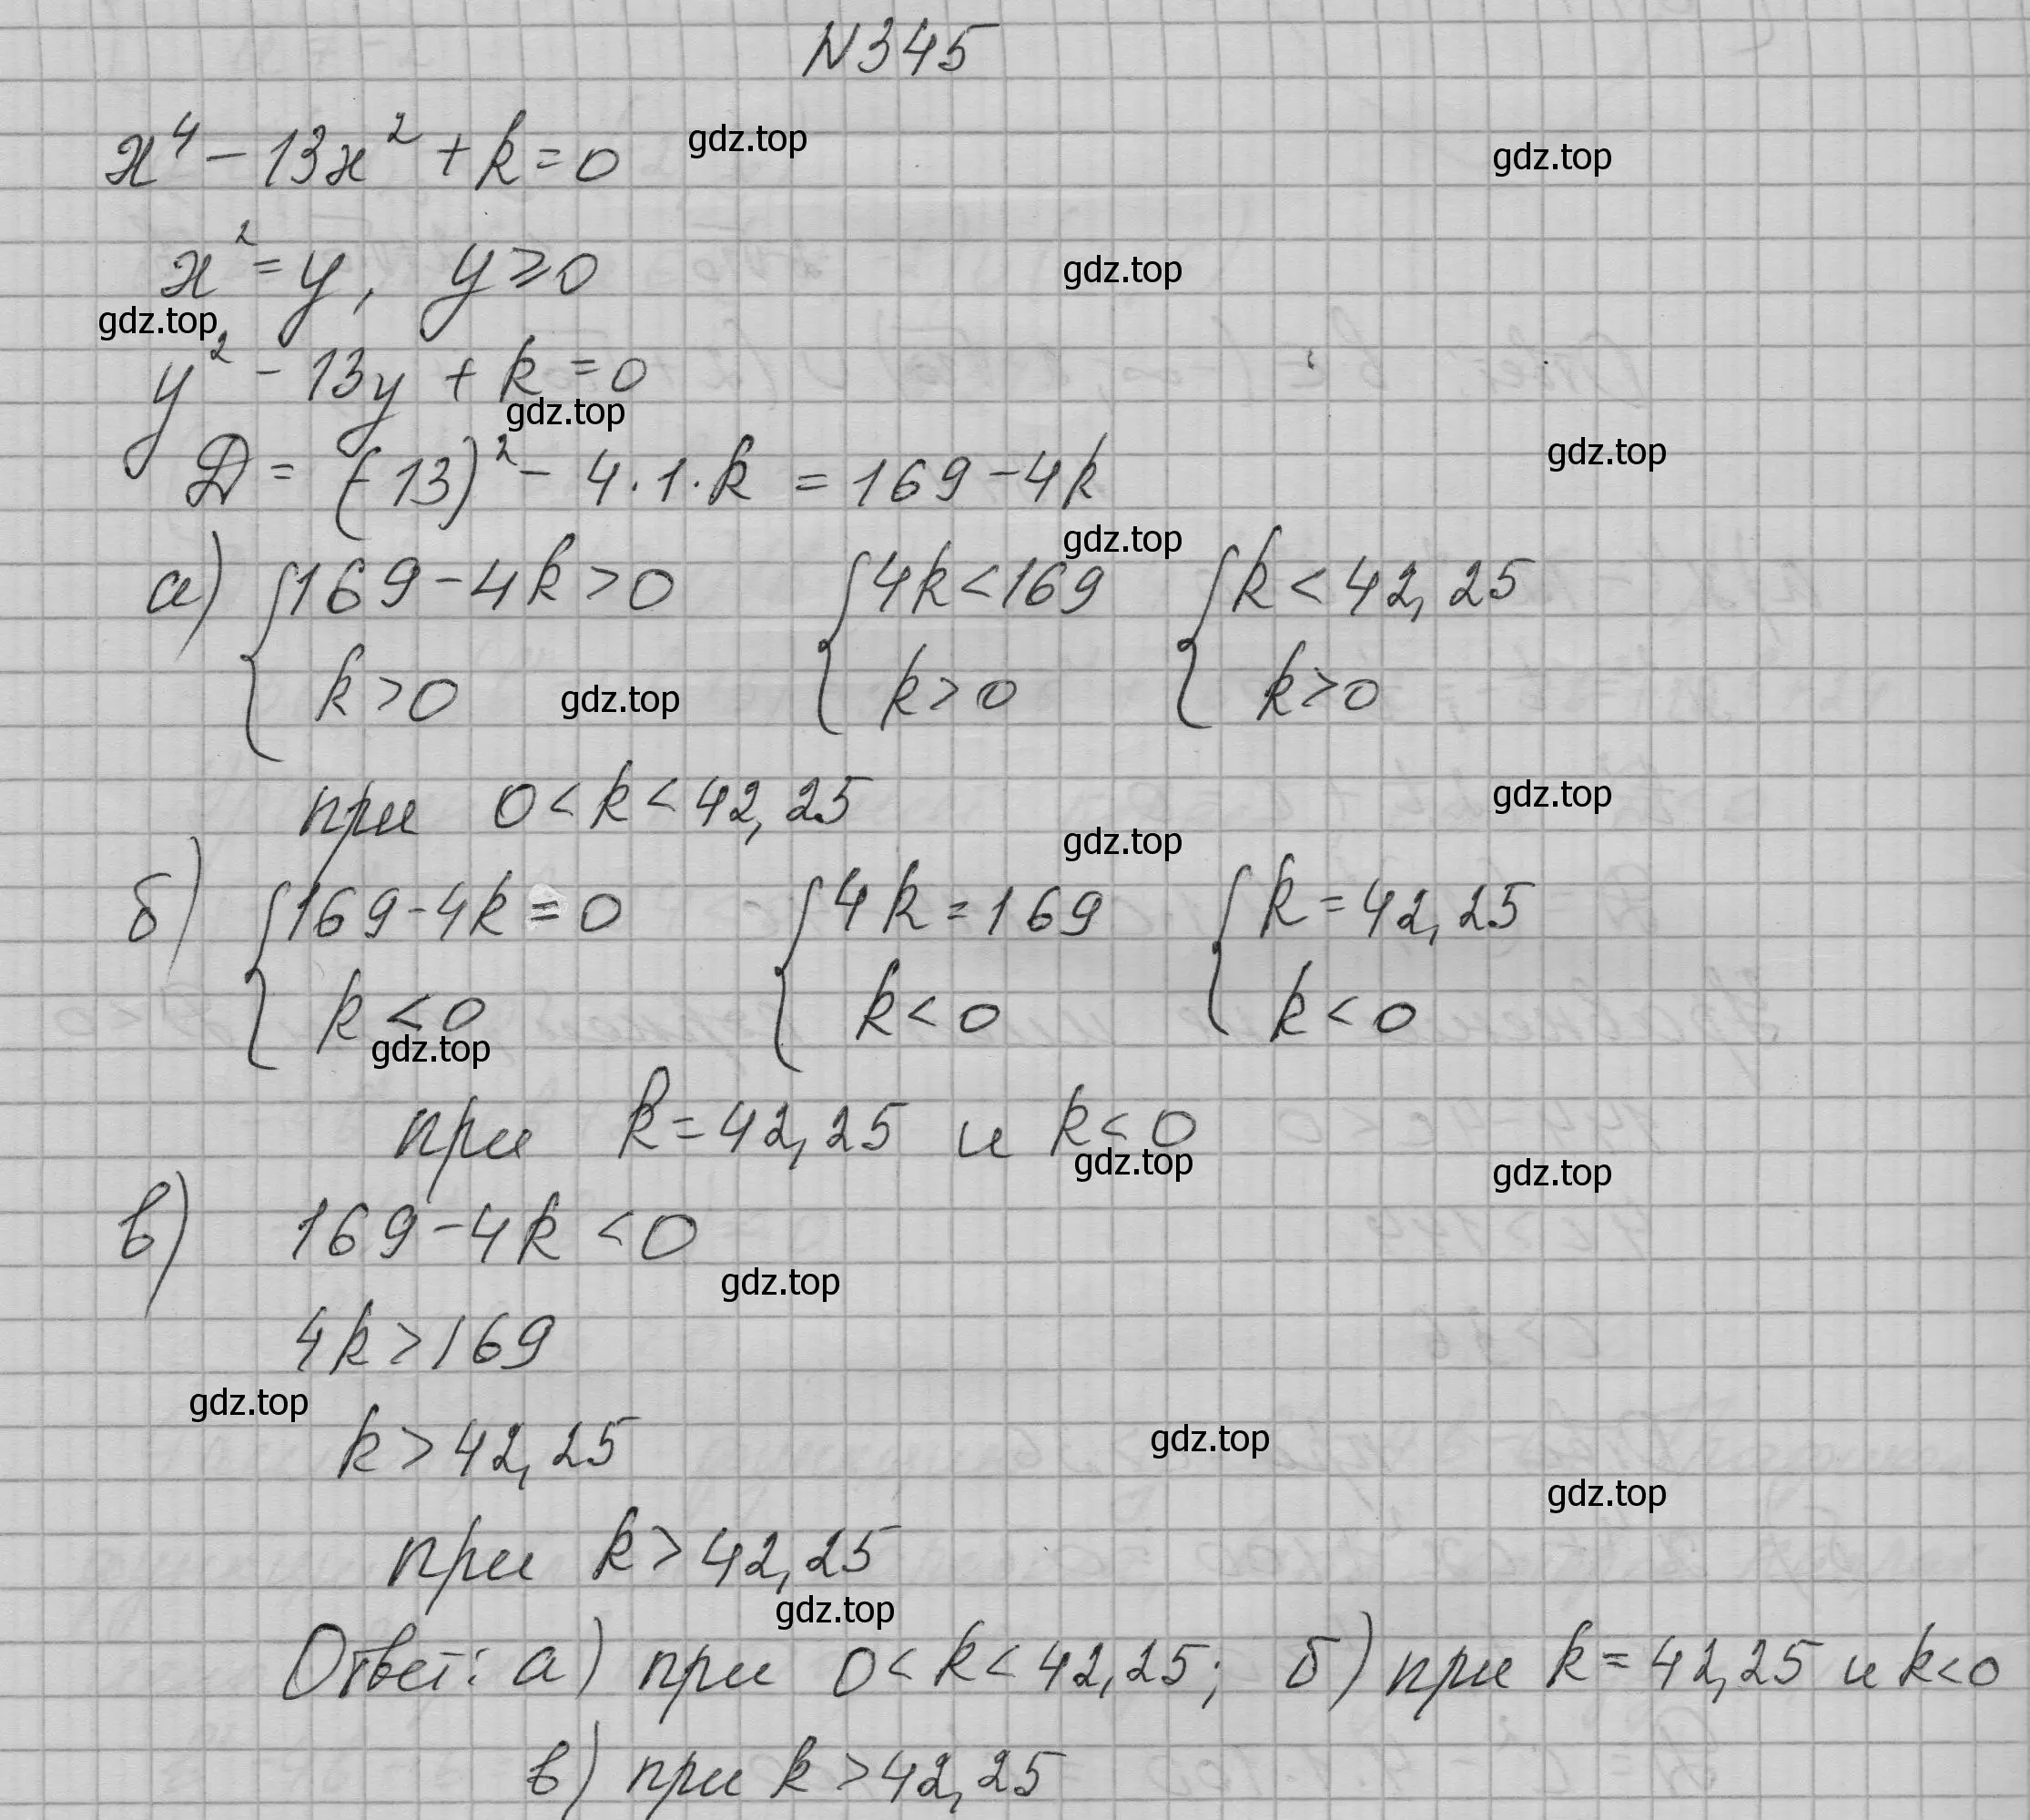 N345
x⁴ - 13x² + k = 0 gdz.top gdz.top
x² = y, y ≥ 0 gdz.top
gdz.top
y² - 13y + k = 0
gdz.top
D = (-13)² - 4·1·k = 169 - 4k gdz.top
gdz.top
а) { 169 - 4k > 0 { 4k < 169 { k < 42,25
k > 0 gdz.top k > 0 k > 0
при 0 < k < 42,25 gdz.top
gdz.top
б) { 169 - 4k = 0 { 4k = 169 { k = 42,25
k < 0 k < 0 k < 0
gdz.top
при k = 42,25 и k < 0
gdz.top gdz.top
в) 169 - 4k < 0
gdz.top
4k > 169
gdz.top
k > 42,25 gdz.top
gdz.top
при k > 42,25
gdz.top
Ответ: а) при 0 < k < 42,25; б) при k = 42,25 и k < 0
в) при k > 42,25